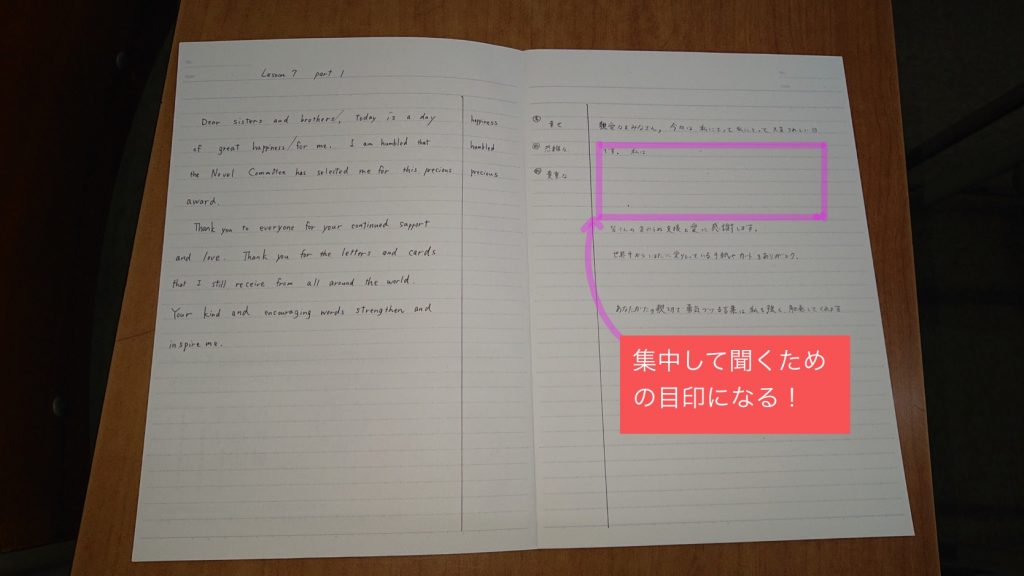 Lesson 7 part 1
Dear sisters and brothers, Today is a day
of great happiness/for me. I am humbled that
the Novel Committee has selected me for this precious
award.
Thank you to everyone for your continued sapport
and love. Thank you for the letters and cards
that I still receive from all around the world.
Your kind and encouraging words strengthen and
inspire me.
happiness
humbled
precious
幸せ
貴重な
親愛なるみなさん。今日は私にとって私にとって大変うれしい日
です。私は
支援と愛に感謝します。
手紙やカードをありがとう。
あなたがたの親切で 言葉は私を強く
集中して聞くため
の目印になる！